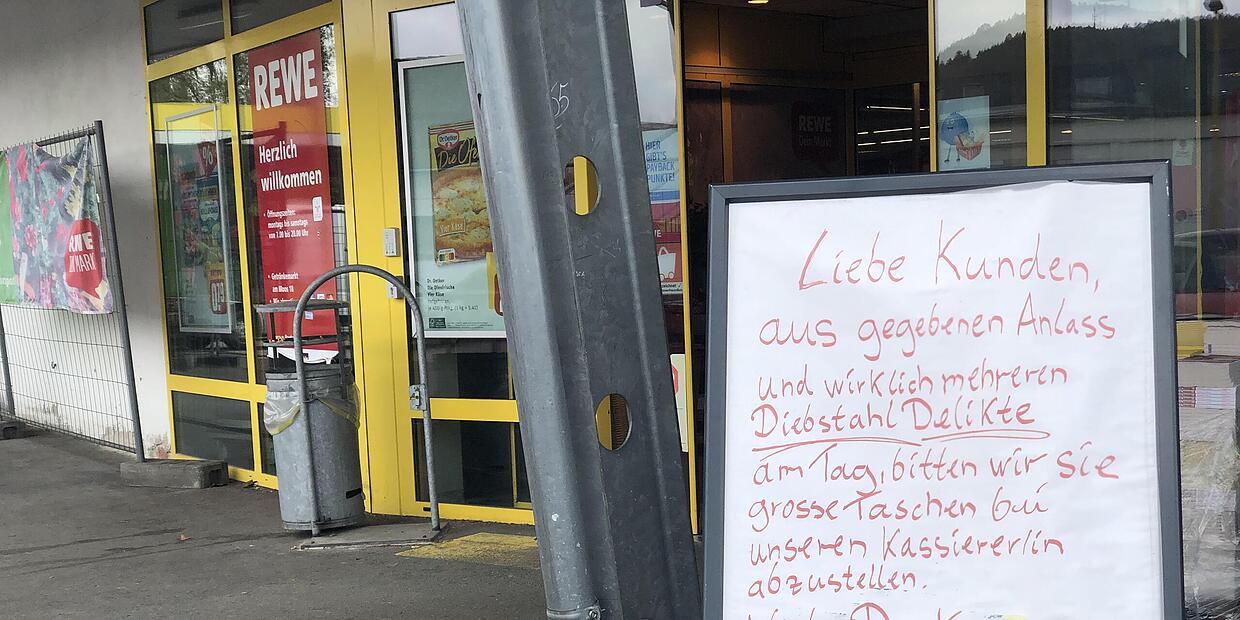 REWE
Herzlich
willkommen
Öffnungszeiten:
montags bis samstags
von 7.00 bis 20.00 Uhr
Getränkemarkt
am Moos 18
Dr. Oetker
Die Ofe
Vier Käse
Dr. Oetker
Die Ofenfrische
Vier Käse
65
HIER
GIBT'S
PAYBACK
PUNKTE!
REWE
Dein Markt
MARKT
Liebe Kunden,
aus gegebenen Anlass
und wirklich mehreren
Diebstahl Delikte
am Tag, bitten wir sie
grosse Taschen bei
unseren Kassierer/in
abzustellen.